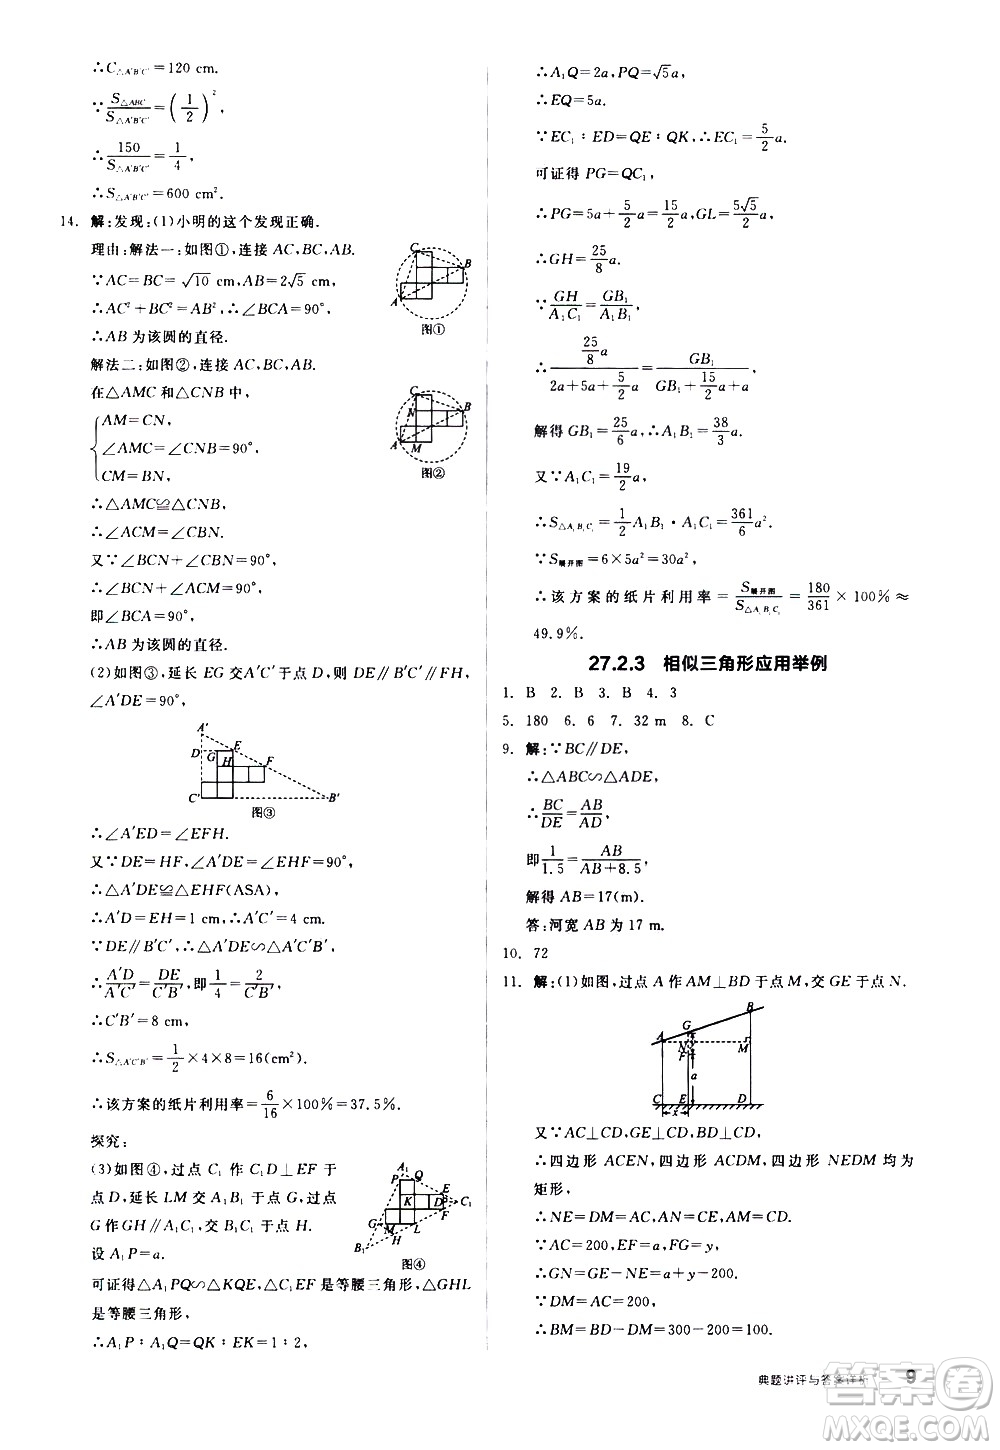 ∴C△A′B′C′=120 cm.
∵S△ABC/S△A′B′C′=(1/2)²,
∴150/S△A′B′C′=1/4,
∴S△A′B′C′=600 cm².
14. 解:发现:(1)小明的这个发现正确.
理由:解法一:如图①,连接 AC,BC,AB.
∵AC=BC=√10 cm,AB=2√5 cm,
∴AC²+BC²=AB²,∴∠BCA=90°,
∴AB 为该圆的直径.
C
B
A
图①
解法二:如图②,连接 AC,BC,AB.
在△AMC 和△CNB 中,
AM=CN,
∠AMC=∠CNB=90°,
CM=BN,
∴△AMC≌△CNB,
∴∠ACM=∠CBN.
C
N
B
A
M
图②
又∵∠BCN+∠CBN=90°,
∴∠BCN+∠ACM=90°,
即∠BCA=90°,
∴AB 为该圆的直径.
(2)如图③,延长 EG 交A′C′于点 D,则 DE∥B′C′∥FH,
∠A′DE=90°,
A′
D
G
E
H
F
C′
B′
图③
∴∠A′ED=∠EFH.
又∵DE=HF,∠A′DE=∠EHF=90°,
∴△A′DE≌△EHF(ASA),
∴A′D=EH=1 cm,∴A′C′=4 cm.
∵DE∥B′C′,∴△A′DE∽△A′C′B′,
∴A′D/A′C′=DE/C′B′,即1/4=2/C′B′,
∴C′B′=8 cm,
∴S△A′C′B′=1/2×4×8=16(cm²).
∴该方案的纸片利用率=6/16×100%=37.5%.
探究:
(3)如图④,过点 C₁ 作 C₁D⊥EF 于
点 D,延长 LM 交 A₁B₁ 于点 G,过点
G作 GH∥A₁C₁,交 B₁C₁ 于点 H.
设 A₁P=a.
A₁
P
Q
E
K
D
C₁
F
G
M
L
H
B₁
图④
可证得△A₁PQ∽△KQE,△C₁EF 是等腰三角形,△GHL
是等腰三角形,
∴A₁P∶A₁Q=QK∶EK=1∶2,
∴A₁Q=2a,PQ=√5a,
∴EQ=5a.
∵EC₁∶ED=QE∶QK,∴EC₁=5/2a.
可证得 PG=QC₁,
∴PG=5a+5/2a=15/2a,GL=5√5/2a,
∴GH=25/8a.
∵GH/A₁C₁=GB₁/A₁B₁,
∴(25/8a)/(2a+5a+5/2a)=GB₁/(GB₁+15/2a+a),
解得 GB₁=25/6a,∴A₁B₁=38/3a.
又∵A₁C₁=19/2a,
∴S△A₁B₁C₁=1/2A₁B₁·A₁C₁=361/6a².
∵S展开图=6×5a²=30a²,
∴该方案的纸片利用率=S展开图/S△A₁B₁C₁=180/361×100%≈
49.9%.
27.2.3 相似三角形应用举例
1. B 2. B 3. B 4. 3
5. 180 6. 6 7. 32 m 8. C
9. 解:∵BC∥DE,
∴△ABC∽△ADE,
∴BC/DE=AB/AD,
即1/1.5=AB/(AB+8.5),
解得 AB=17(m).
答:河宽 AB 为 17 m.
10. 72
11. 解:(1)如图,过点 A 作 AM⊥BD 于点 M,交 GE于点 N.
B
G
A
N
M
F
a
C
E
D
x
又∵AC⊥CD,GE⊥CD,BD⊥CD,
∴四边形 ACEN,四边形 ACDM,四边形 NEDM 均为
矩形,
∴NE=DM=AC,AN=CE,AM=CD.
∵AC=200,EF=a,FG=y,
∴GN=GE-NE=a+y-200.
∵DM=AC=200,
∴BM=BD-DM=300-200=100.
典题讲评与答案详析 9
答案圈
MXQE.COM